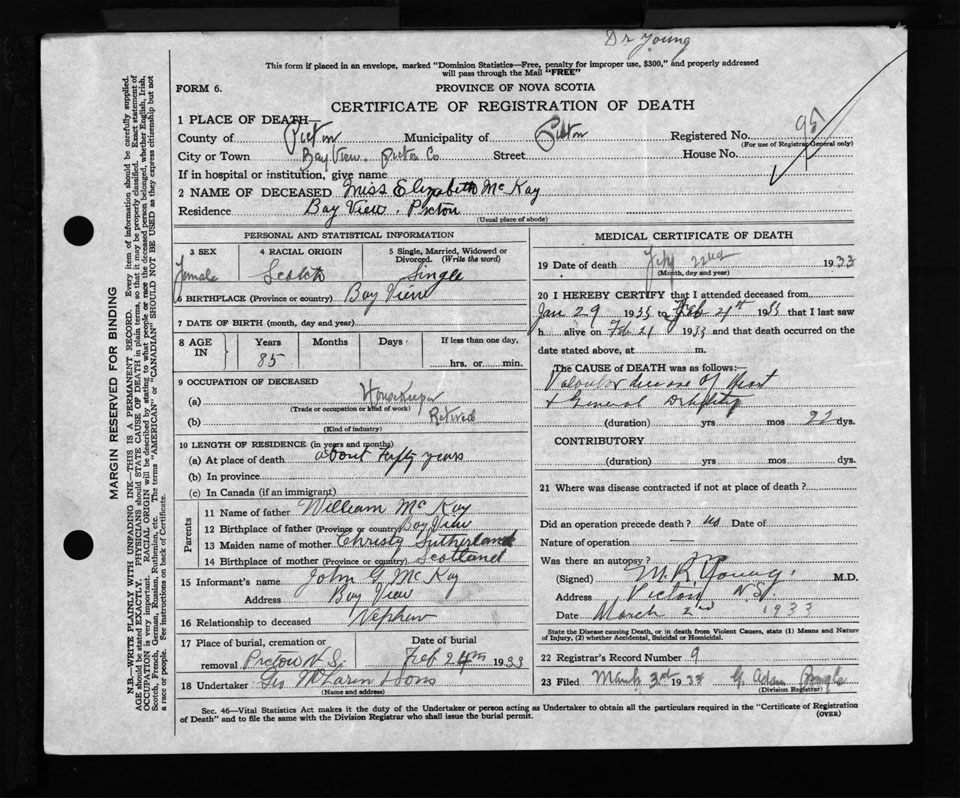 Dr Young
This form if placed in an envelope, marked "Dominion Statistics—Free, penalty for improper use, $300," and properly addressed
will pass through the Mail "FREE"
FORM 6.
PROVINCE OF NOVA SCOTIA
CERTIFICATE OF REGISTRATION OF DEATH
1 PLACE OF DEATH—
County of Pictou Municipality of Pictou Registered No. 95
(For use of Registrar General only)
City or Town Bay View. Pictou Co Street House No.
If in hospital or institution, give name
2 NAME OF DECEASED Miss Elizabeth McKay
Residence Bay View. Pictou
(Usual place of abode)
PERSONAL AND STATISTICAL INFORMATION
3 SEX 4 RACIAL ORIGIN 5 Single, Married, Widowed or Divorced. (Write the word)
Female Scotch Single
6 BIRTHPLACE (Province or country) Bay View
7 DATE OF BIRTH (month, day and year)
8 AGE IN Years Months Days If less than one day,
85 hrs. or min.
9 OCCUPATION OF DECEASED
(a) Housekeeper
(Trade or occupation or kind of work)
(b) Retired
(Kind of industry)
10 LENGTH OF RESIDENCE (in years and months)
(a) At place of death about fifty years
(b) In province
(c) In Canada (if an immigrant)
Parents
11 Name of father William McKay
12 Birthplace of father (Province or country) Bay View
13 Maiden name of mother Christy Sutherland
14 Birthplace of mother (Province or country) Scotland
15 Informant's name John G McKay
Address Bay View
16 Relationship to deceased Nephew
17 Place of burial, cremation or Date of burial
removal Pictou N.S. Feb 24th 1933
18 Undertaker Geo McLaren & Sons
(Name and address)
MEDICAL CERTIFICATE OF DEATH
19 Date of death Feby 22nd 1933
(Month, day and year)
20 I HEREBY CERTIFY that I attended deceased from
Jan 29 1933 to Feb 21st 1933 that I last saw
h alive on Feb 21 1933 and that death occurred on the
date stated above, at m.
The CAUSE OF DEATH was as follows:—
Valvular disease of Heart
& General Debility
(duration) yrs mos 22 dys.
CONTRIBUTORY
(duration) yrs mos dys.
21 Where was disease contracted if not at place of death?
Did an operation precede death? no Date of
Nature of operation —
Was there an autopsy? no
(Signed) M.R. Young. M.D.
Address Pictou N.S.
Date March 2nd 1933
State the Disease causing Death, or in death from Violent Causes, state (1) Means and Nature
of Injury, (2) whether Accidental, Suicidal or Homicidal.
22 Registrar's Record Number 9
23 Filed March 3rd 1933 G. Adam
(Division Registrar)
Sec. 46—Vital Statistics Act makes it the duty of the Undertaker or person acting as Undertaker to obtain all the particulars required in the "Certificate of Registration
of Death" and to file the same with the Division Registrar who shall issue the burial permit. (OVER)
MARGIN RESERVED FOR BINDING
N.B.—WRITE PLAINLY WITH UNFADING INK—THIS IS A PERMANENT RECORD. Every item of information should be carefully supplied.
AGE should be stated EXACTLY. PHYSICIANS should STATE CAUSE OF DEATH in plain terms, so that it may be properly classified. Exact statement of
OCCUPATION is very important. RACIAL ORIGIN will be described by stating to what people or race the deceased person belonged, whether English, Irish,
Scotch, French, German, Russian, Ruthenian, etc. The terms "AMERICAN" or "CANADIAN" SHOULD NOT BE USED as they express citizenship but not
a race or people. See instructions on back of Certificate.